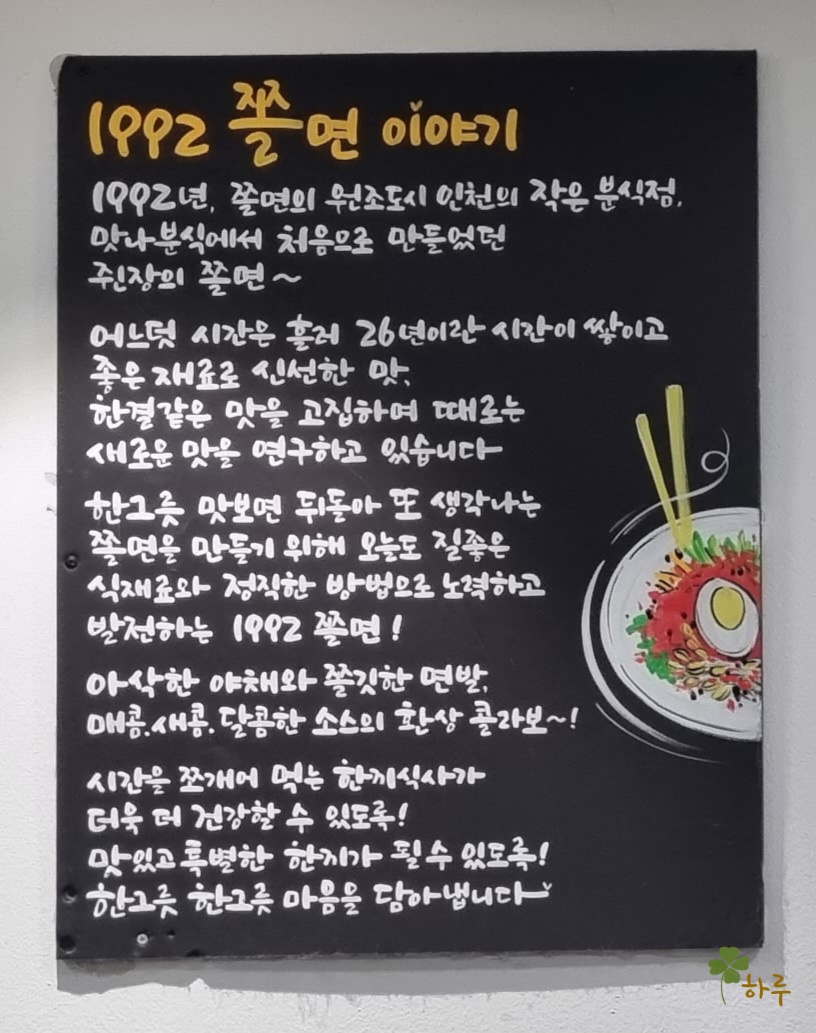 1992 쫄면 이야기
1992년, 쫄면의 원조도시 인천의 작은 분식점,
맛나분식에서 처음으로 만들었던
쥔장의 쫄면~
어느덧 시간은 흘러 26년이란 시간이 쌓이고
좋은 재료로 신선한 맛,
한결같은 맛을 고집하며 때로는
새로운 맛을 연구하고 있습니다
한그릇 맛보면 뒤돌아 또 생각나는
쫄면을 만들기 위해 오늘도 질좋은
식재료와 정직한 방법으로 노력하고
발전하는 1992 쫄면!
아삭한 야채와 쫄깃한 면발,
매콤.새콤.달콤한 소스의 환상 콜라보~!
시간을 쪼개어 먹는 한끼식사가
더욱 더 건강할 수 있도록!
맛있고 특별한 한끼가 될 수 있도록!
한그릇 한그릇 마음을 담아냅니다
하루